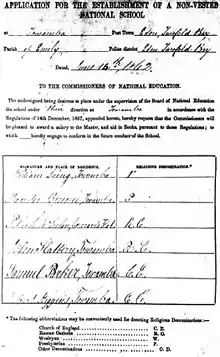 APPLICATION FOR THE ESTABLISHMENT OF A NON-VESTED
NATIONAL SCHOOL
at Towamba Post Town Eden, Twofold Bay
Parish of Police district Eden Twofold Bay
Dated, June 14th 1862
TO THE COMMISSIONERS OF NATIONAL EDUCATION.
The undersigned being desirous to place under the supervision of the Board of National Education
the school under their direction at Towamba in accordance with the
Regulations of 14th December, 1857, appended hereto, hereby request that the Commissioners will
be pleased to award a salary to the Master, and aid in Books, pursuant to those Regulations; to
which hereby engage to conform in the future conduct of the School.
SIGNATURE AND PLACE OF RESIDENCE. RELIGIOUS DENOMINATION.*
Laing, Towamba P
Towamba P
R.C.
John Hallory, Towamba R.C.
Samuel Baker, Towamba C.E.
Towamba C.E.
* The following abbreviations may be conveniently used for denoting Religious Denominations:—
Church of England C. E.
Roman Catholic R. C.
Wesleyan W.
Presbyterian P.
Other Denominations O. D.